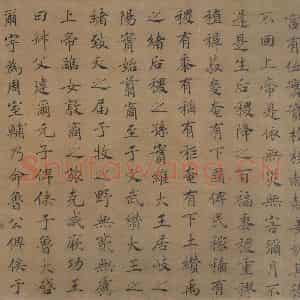 宮有侐實實枚枚赫赫姜嫄其德
不回上帝是依無災無害彌月不
遲是生后稷降之百福黍稷重穋
稙稺菽麥奄有下國俾民稼穡有
稷有黍有稻有秬奄有下土纘禹
之緒后稷之孫實維大王居岐之
陽實始翦商至于文武纘大王之
緒致天之屆于牧之野無貳無虞
上帝臨女敦商之旅克咸厥功王
曰叔父建爾元子俾侯于魯大啟
爾宇為周室輔乃命魯公俾侯于
Shufawang.CN